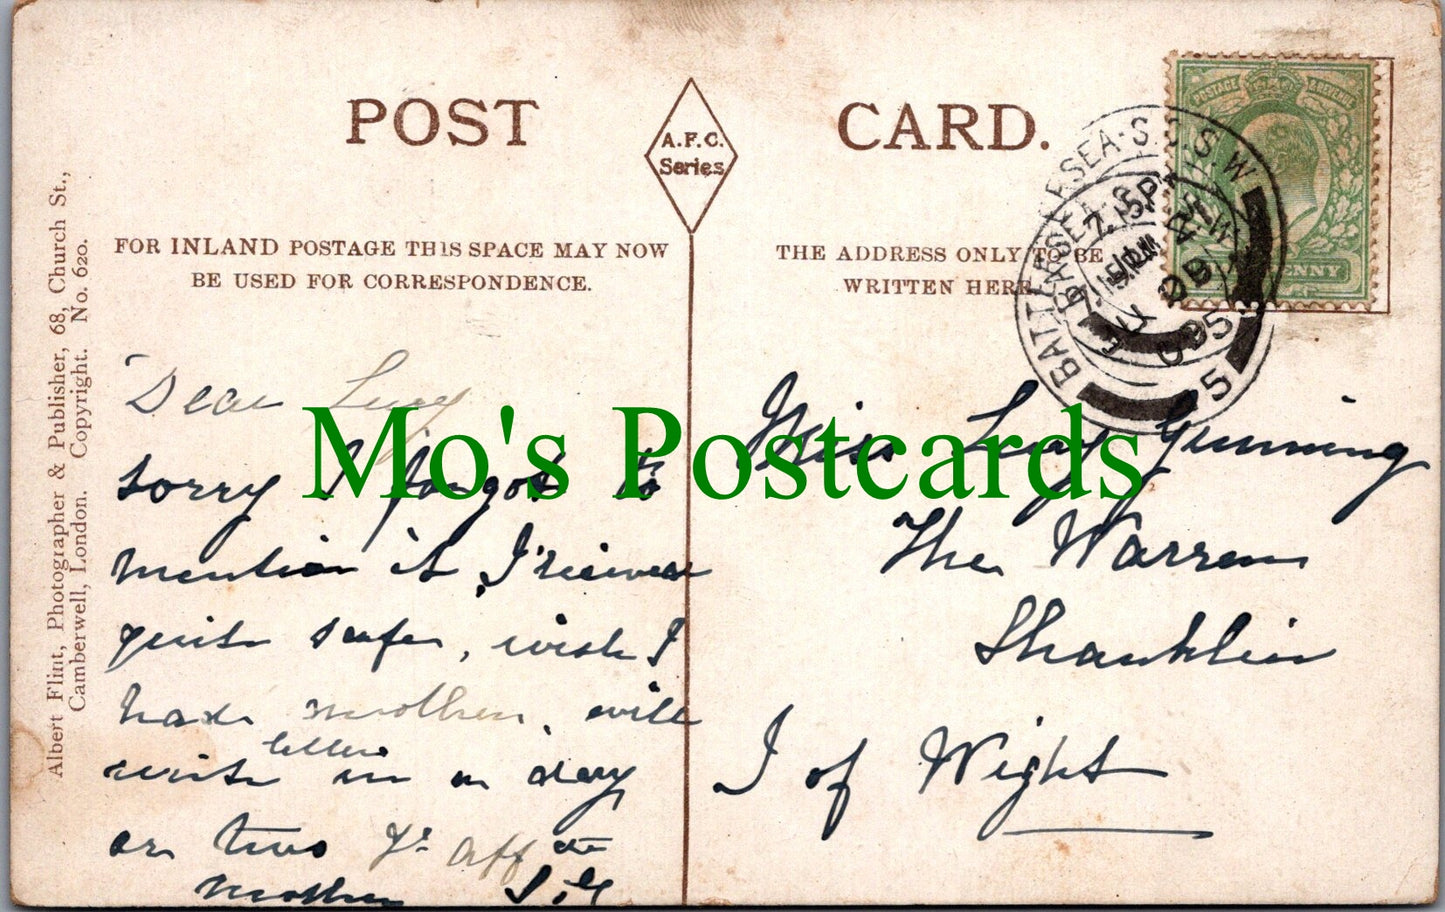 POST
CARD.
A.F.C.
Series
FOR INLAND POSTAGE THIS SPACE MAY NOW
BE USED FOR CORRESPONDENCE.
THE ADDRESS ONLY TO BE
WRITTEN HERE
Albert Flint, Photographer & Publisher, 68, Church St.,
Camberwell, London. Copyright. No. 620.
POSTAGE & REVENUE
BATTERSEA S.O. S.W
5
Mo's Postcards
Dear Lucy
sorry I forgot to
mention it, I received
quite safe, wish I
had another. will
write letter in a day
or two Yr aff
mother
Miss Lucy Gunning
The Warren
Shanklin
I of Wight